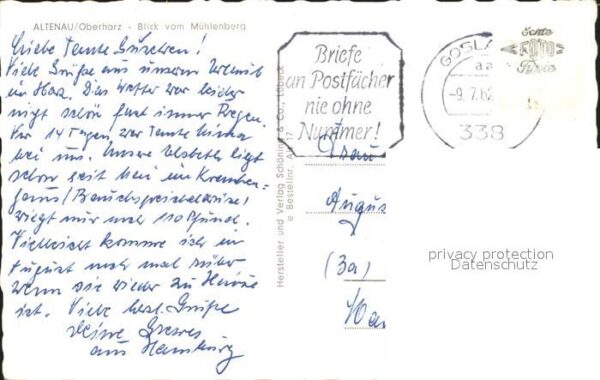 ALTENAU/Oberharz - Blick vom Mühlenberg
Liebe Tante Gürchen!
Viele Grüße aus unserem Urlaub
im Harz. Das Wetter war leider
nicht schön fast immer Regen.
Vor 14 Tagen war Tante
bei uns. Unsere Elsbeth liegt
schon seit Mai im Kranken-
haus/Bauchspeicheldrüse!
wiegt nur noch 110 Pfund.
Vielleicht komme ich im
August noch mal rüber
wenn sie wieder zu Hause
ist. Viele herzl. Grüße
Deine
aus Hamburg
Hersteller und Verlag Schöning & Co., Lübeck
Bestellnr.
Briefe
an Postfächer
nie ohne
Nummer!
GOSLA
aa
-9.7.62
338
Echte
FOTO
Frau
Augus
(3a)
Ha
privacy protection
Datenschutz